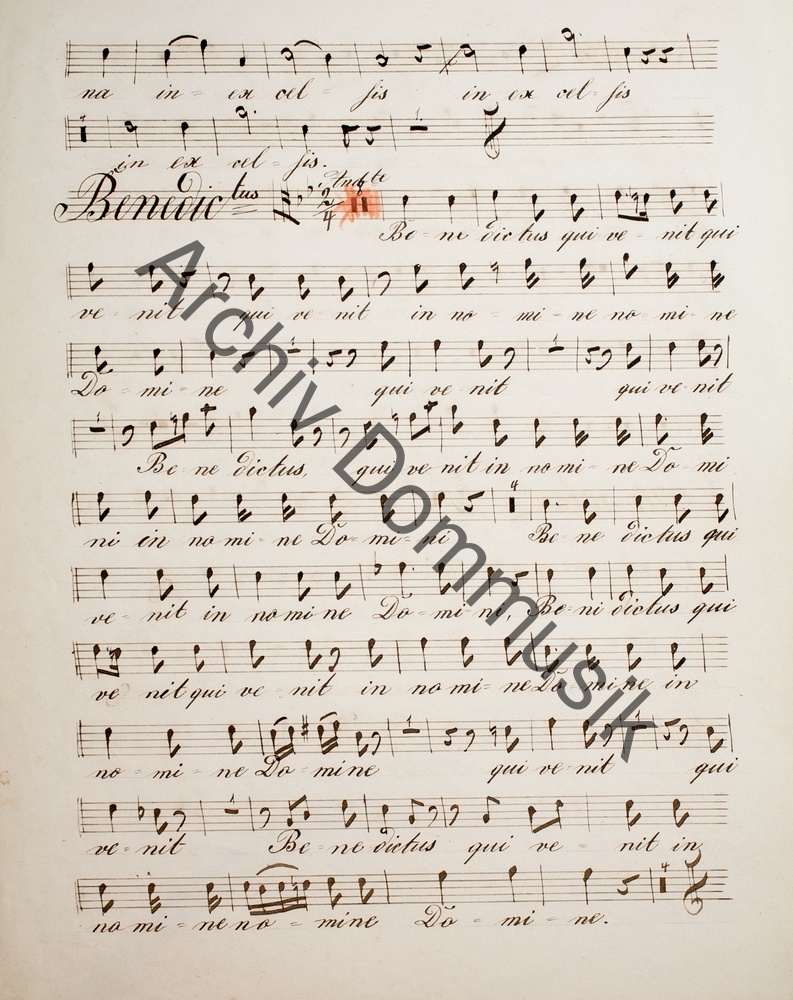 na in = ex cel = sis in ex cel = sis
in ex cel = sis.
Benedictus Andte 2/4
Be = ne dictus qui ve = nit qui
ve = nit qui ve = nit in no = mi = ne no = mi = ne
Do = mi = ne qui ve = nit qui ve = nit
Be = ne dictus, qui ve nit in no mi = ne Do = mi
ni in no mi = ne Do = mi = ni 4 Be = ne dictus qui
ve = nit in no mi ne Do = mi ni, Be = ni dictus qui
ve nit qui ve = nit in no mi = ne Do mi ne in
no = mi = ne Do = mine qui ve = nit qui
ve = nit Be = ne dictus qui ve = nit in
no mi = ne no = mine Do = mi = ne. 4
Archiv Dommusik